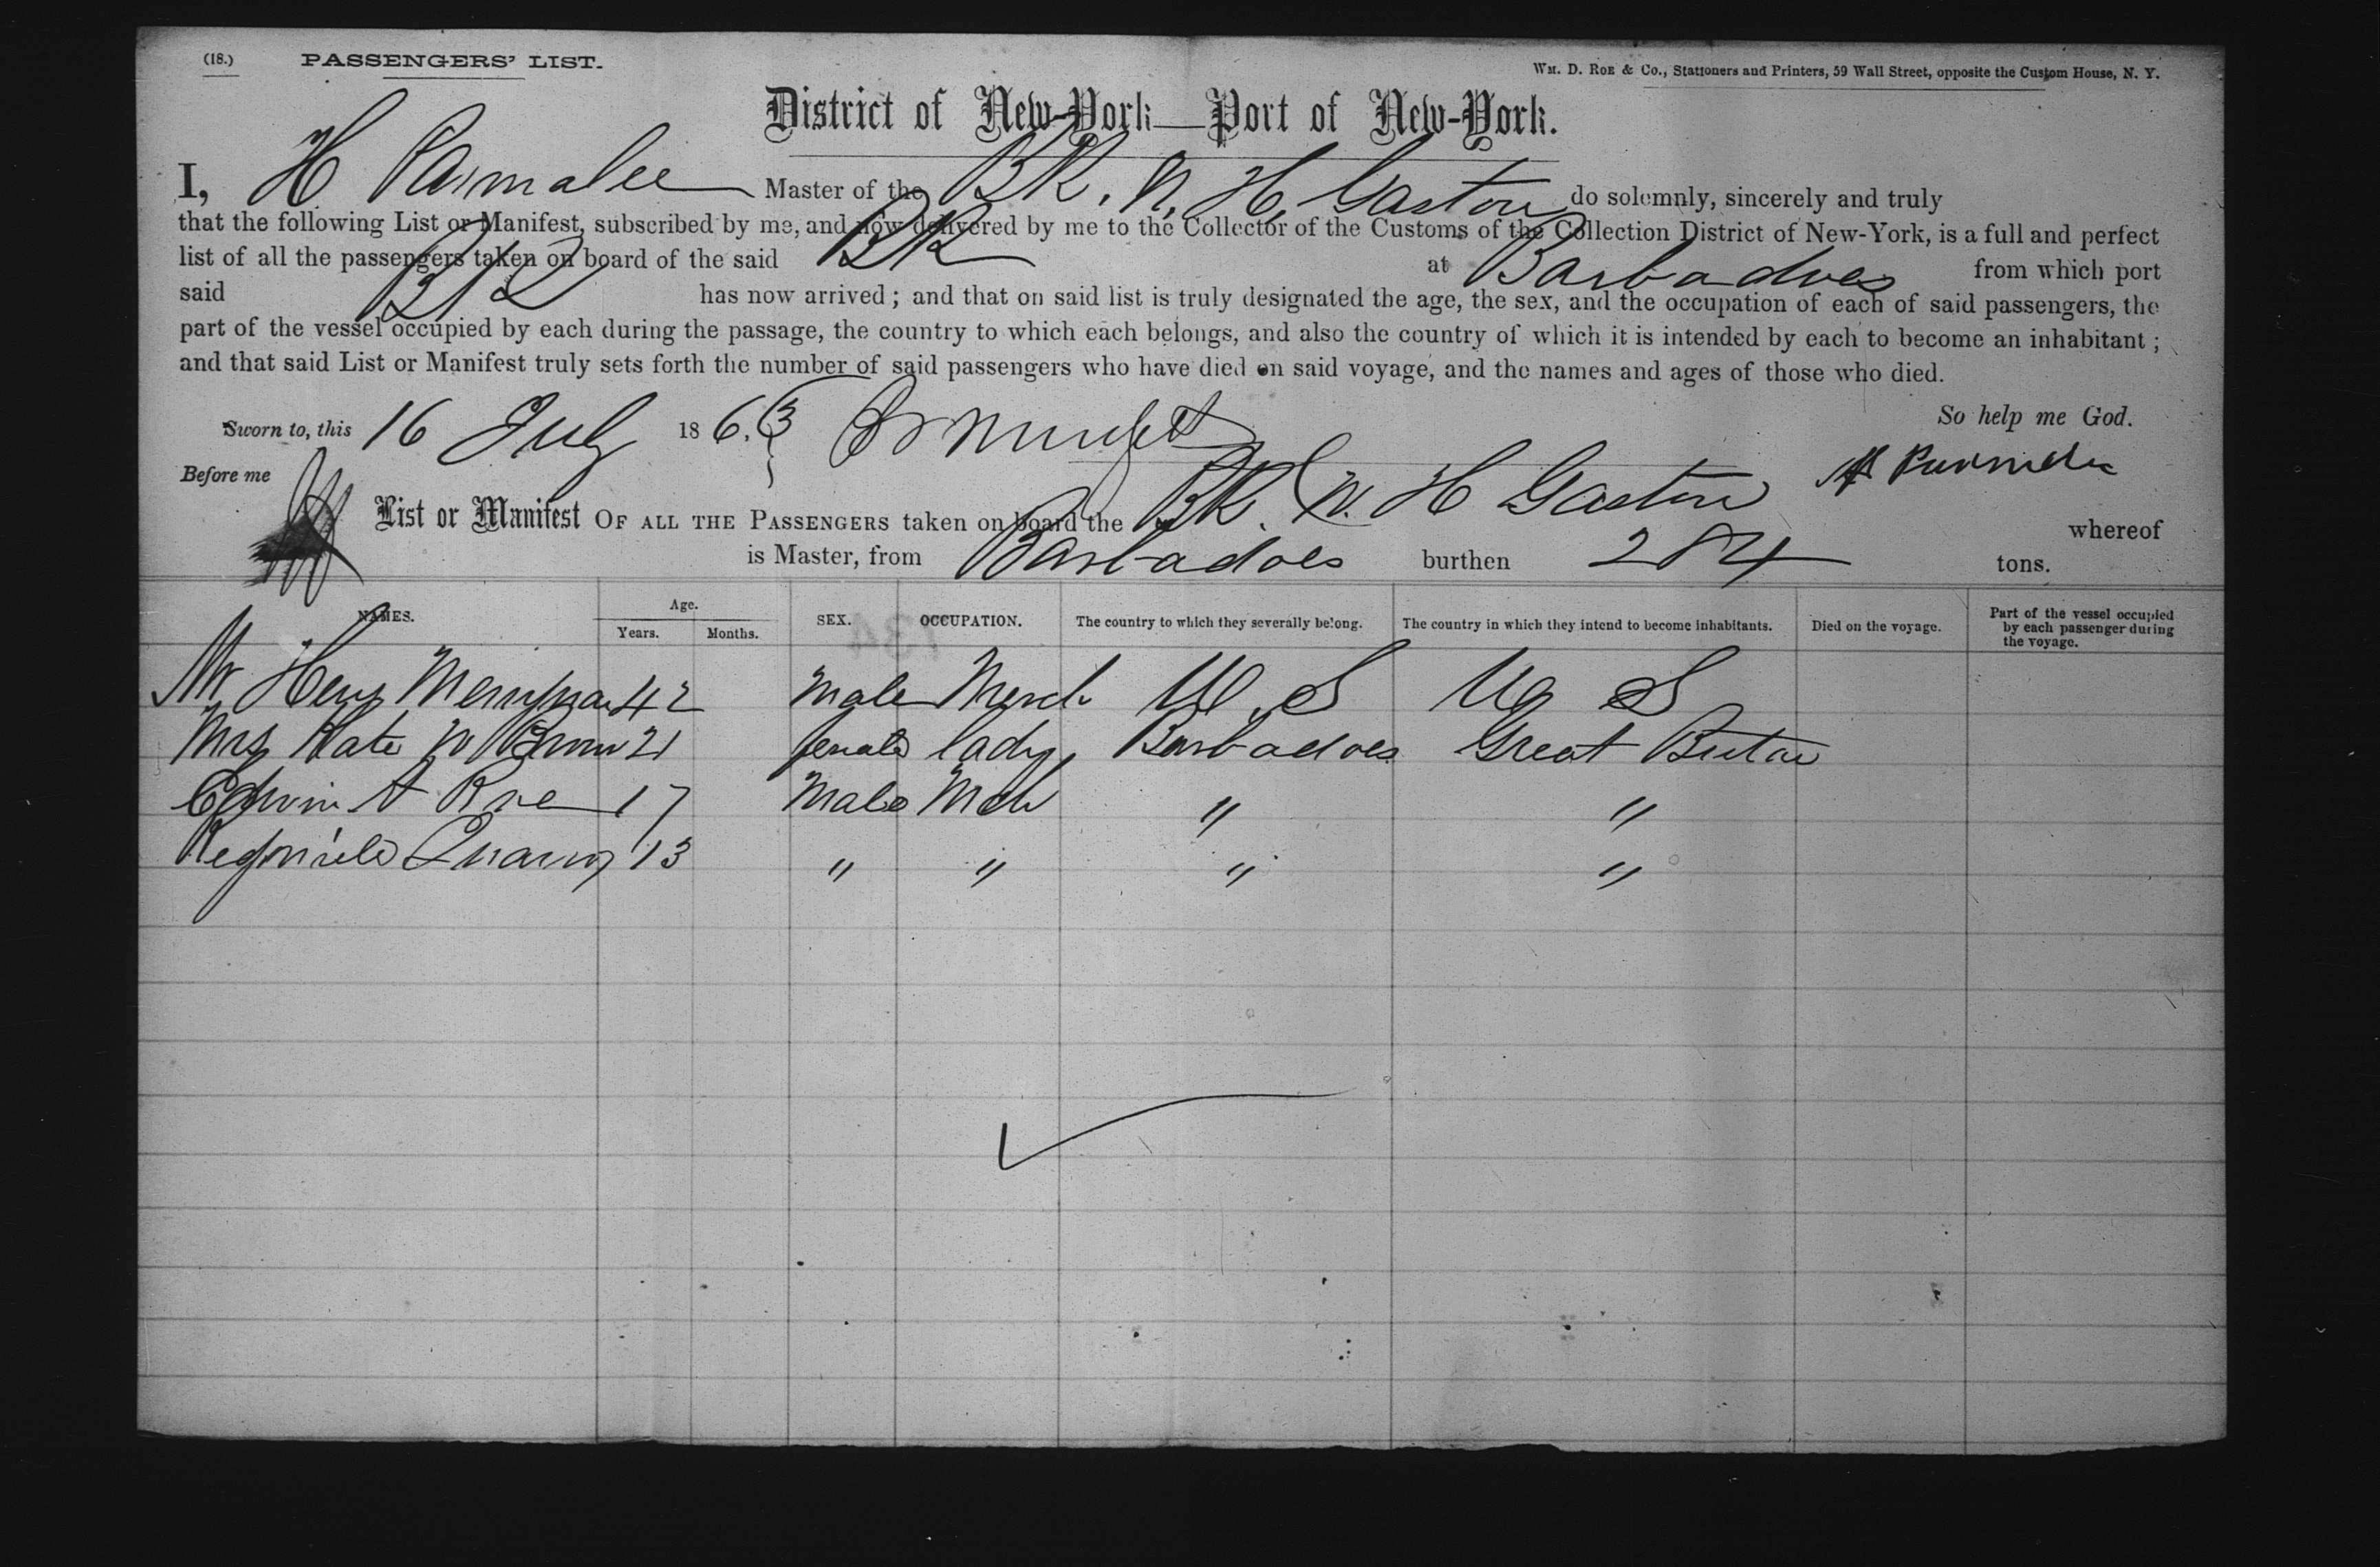 (18.) PASSENGERS' LIST.
WM. D. ROE & CO., Stationers and Printers, 59 Wall Street, opposite the Custom House, N. Y.
District of New-York—Port of New-York.
I, H Parmalee Master of the BK. N. H. Gaston do solemnly, sincerely and truly
that the following List or Manifest, subscribed by me, and now delivered by me to the Collector of the Customs of the Collection District of New-York, is a full and perfect
list of all the passengers taken on board of the said BK at Barbadoes from which port
said BK has now arrived; and that on said list is truly designated the age, the sex, and the occupation of each of said passengers, the
part of the vessel occupied by each during the passage, the country to which each belongs, and also the country of which it is intended by each to become an inhabitant;
and that said List or Manifest truly sets forth the number of said passengers who have died on said voyage, and the names and ages of those who died.
So help me God.
Sworn to, this 16 July 186.3
Before me
H Parmalee
List or Manifest OF ALL THE PASSENGERS taken on board the BK. N. H Gaston whereof
is Master, from Barbadoes burthen 284 tons.
NAMES. Age. Years. Months. SEX. OCCUPATION. The country to which they severally belong. The country in which they intend to become inhabitants. Died on the voyage. Part of the vessel occupied by each passenger during the voyage.
Mr Henry 42 Male Merch U. S U S
Mrs Kate 21 female lady Barbadoes Great Britain
Edwin A Roe 17 Male Mch " "
13 " " " "